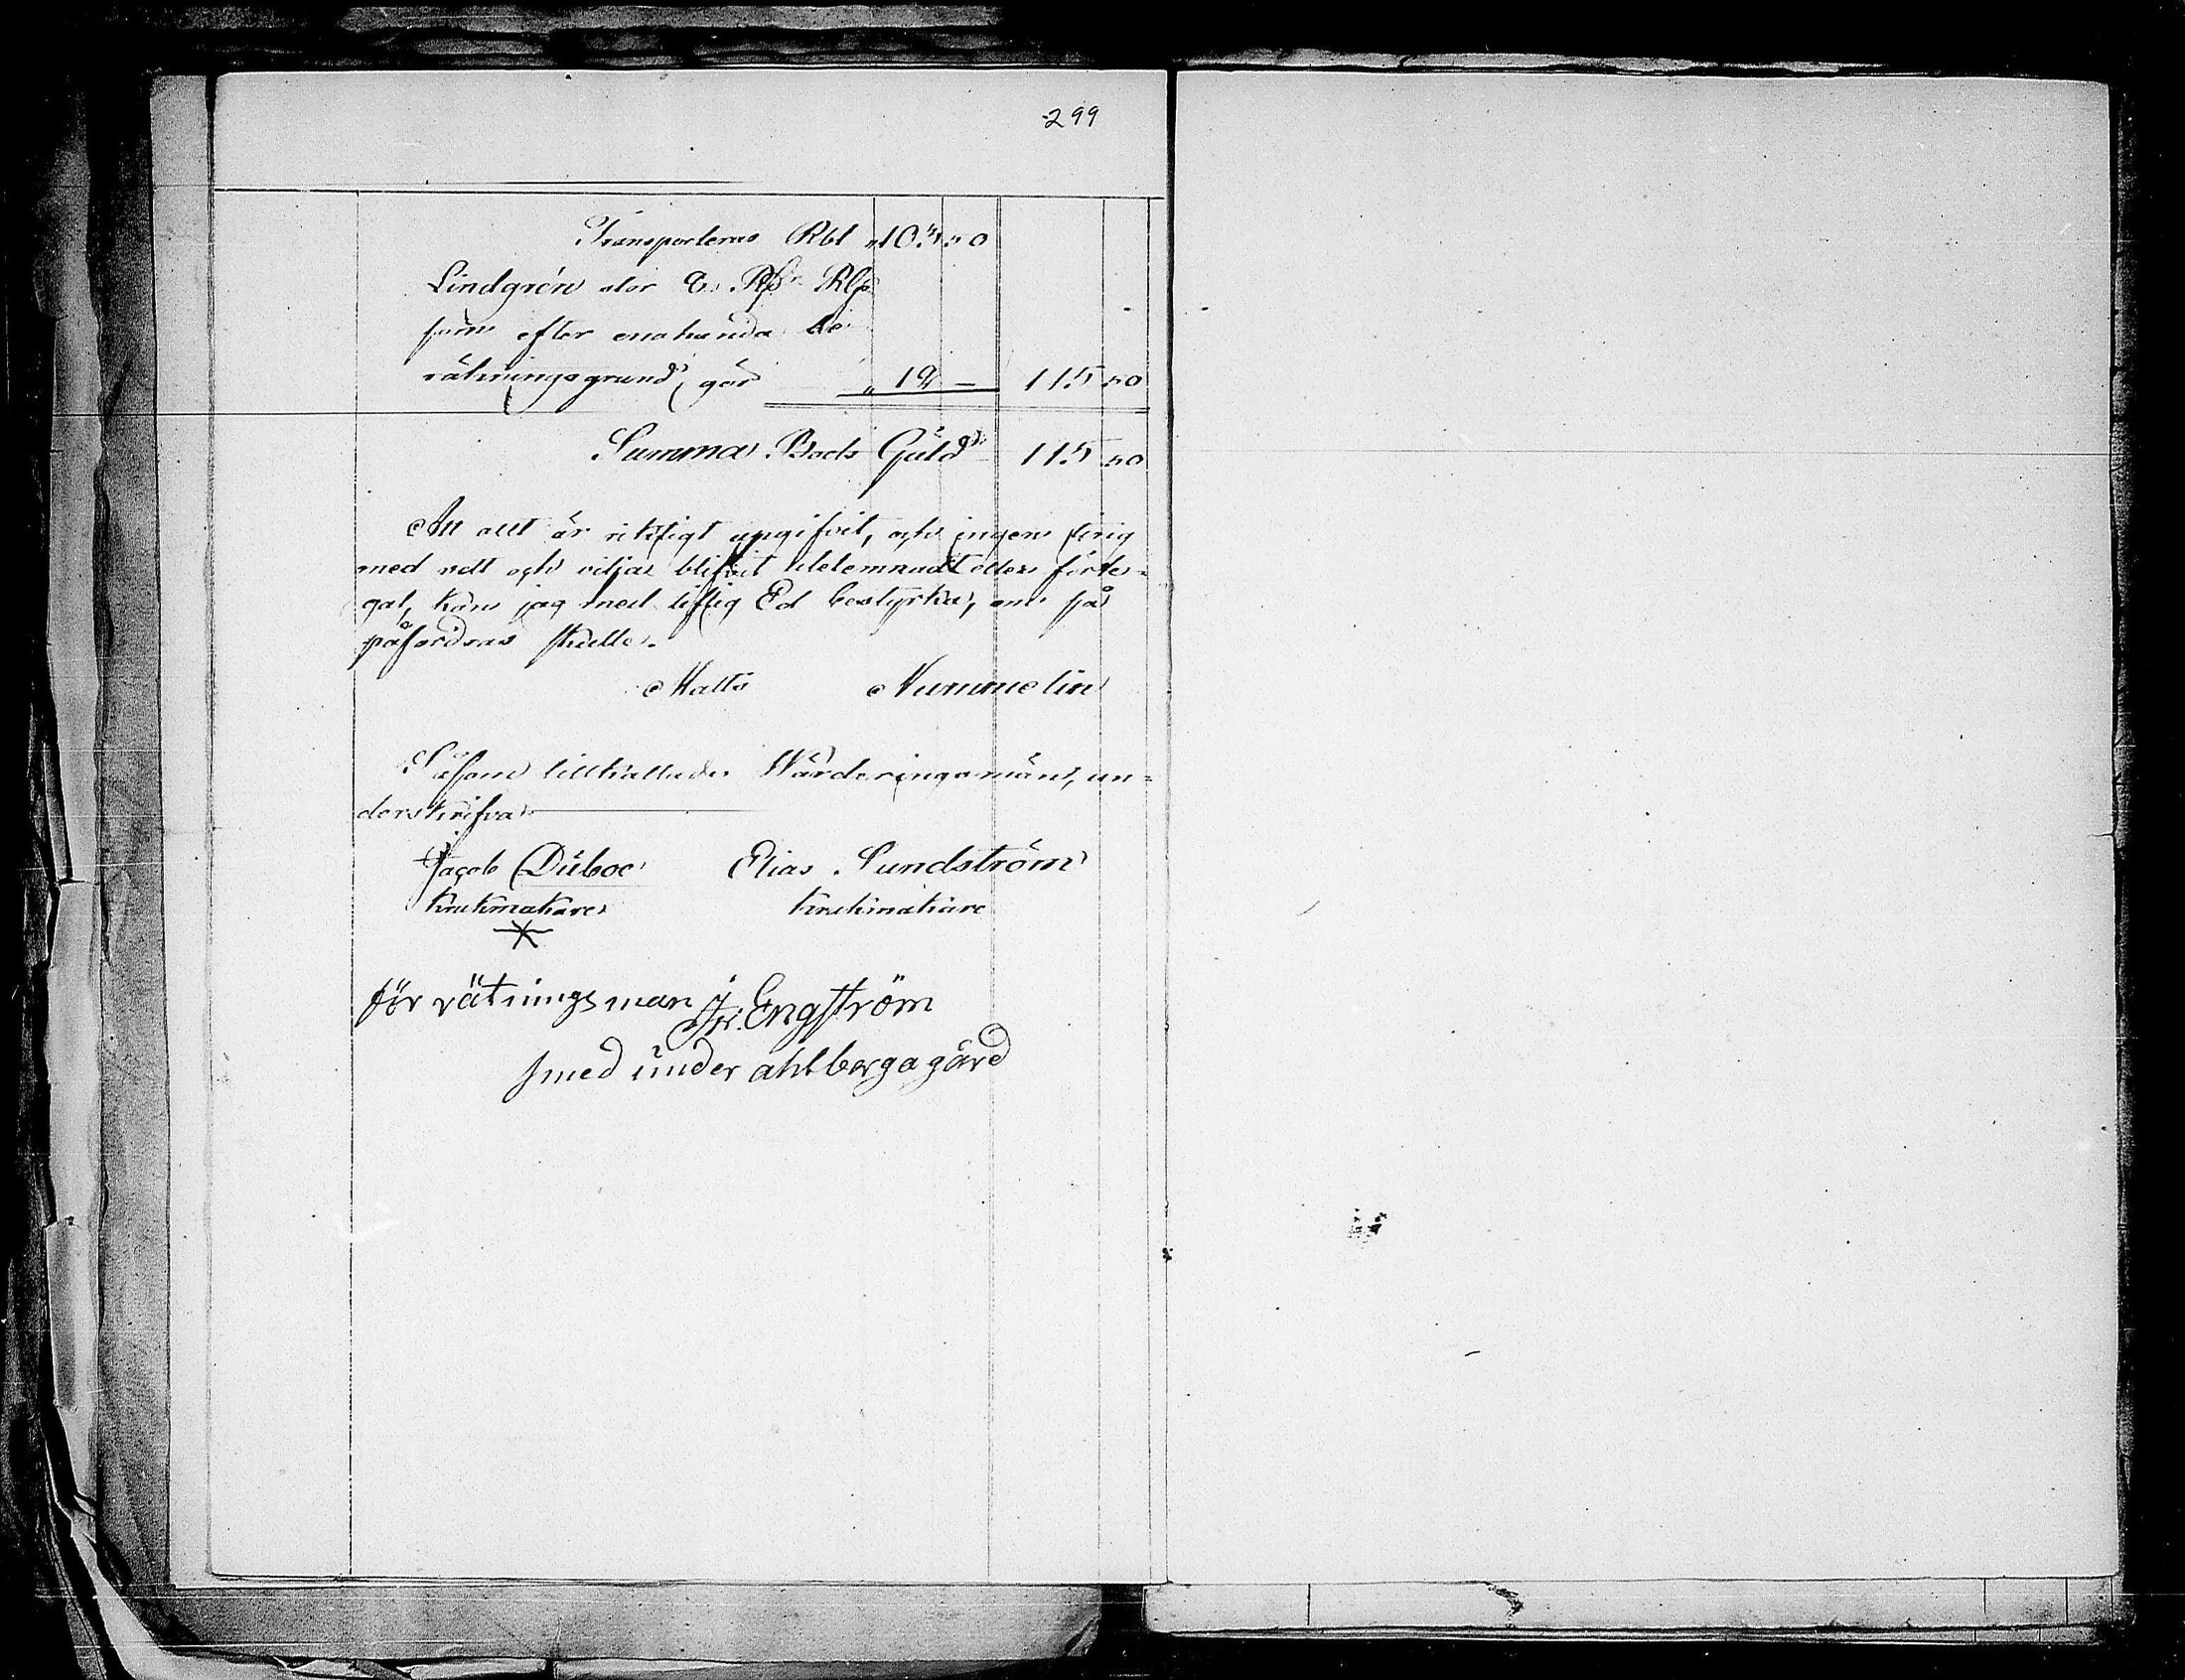 299
Transporteras Rbl "103 50
Lindgrén stor
som efter enahanda be
räkningsgrund gör " 12 — 115 50
Summa Bods Güld 115 50
Att allt är riktigt upgifvit, och ingen ting
med vett och vilja blifvit utelemnadt eller förte-
gat, kan jag med liflig Ed bestyrka, om så
påfordras skulle.
Matts Nummelin
Såsom tillkallade Wärderingsmän, un=
derskrifva
Jacob Düboe Elias Sundström
Krukmakare Krukmakare
för rätningsman Fr. Engström
smed under ahlberga gård